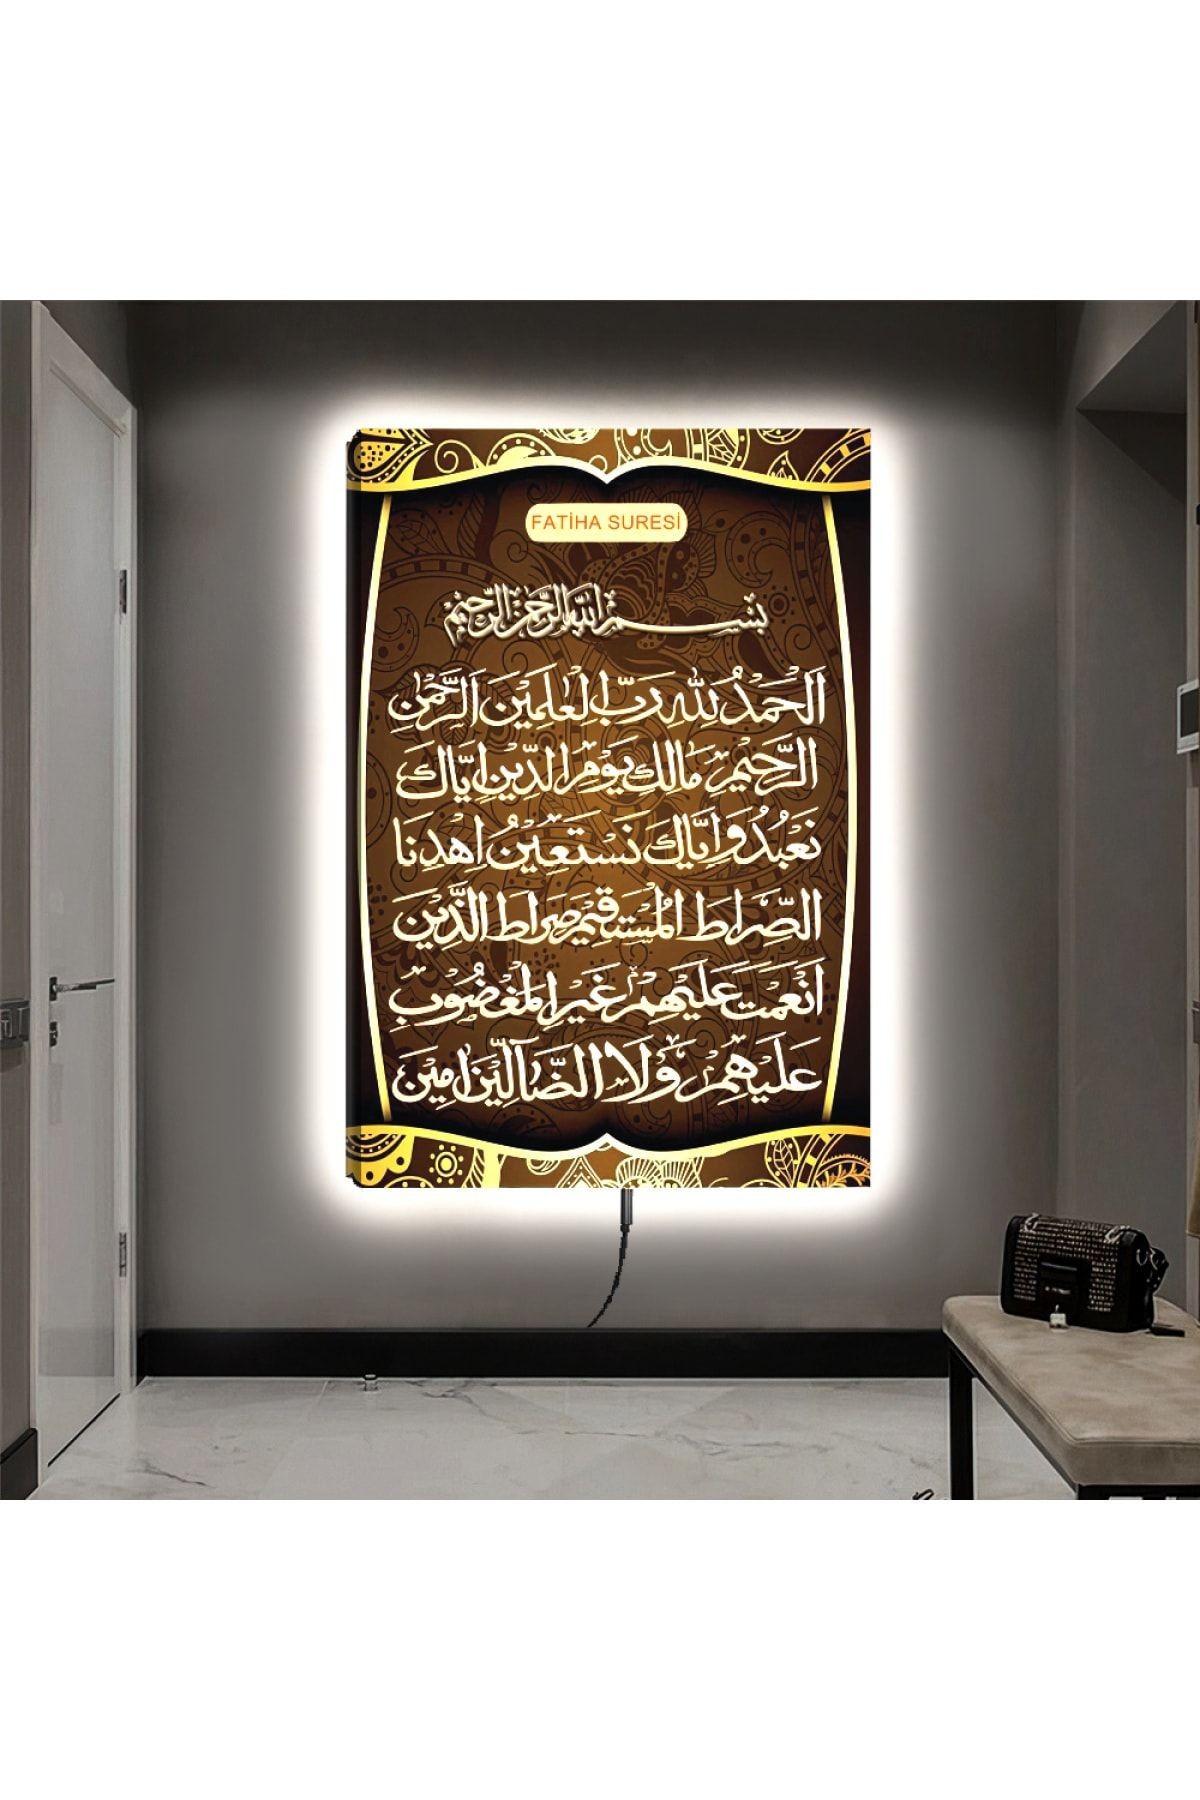 FATİHA SURESİ
بسم الله الرحمن الرحيم
اَلْحَمْدُ لِلّٰهِ رَبِّ الْعٰلَمِينَ اَلرَّحْمٰنِ
الرَّحِيمِ مَالِكِ يَوْمِ الدِّينِ اِيَّاكَ
نَعْبُدُ وَاِيَّاكَ نَسْتَعِينُ اِهْدِنَا
الصِّرَاطَ الْمُسْتَقِيمَ صِرَاطَ الَّذِينَ
اَنْعَمْتَ عَلَيْهِمْ غَيْرِ الْمَغْضُوبِ
عَلَيْهِمْ وَلَا الضَّآلِّينَ اٰمِينَ